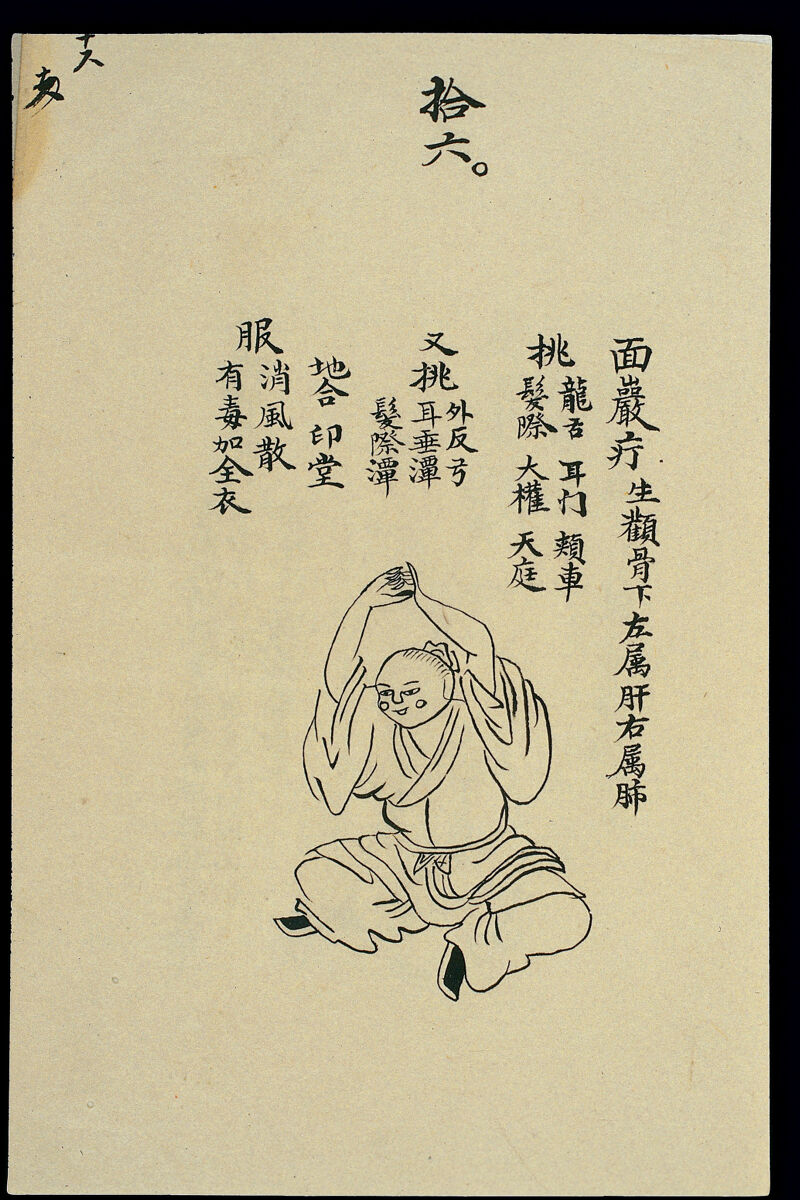 拾六。
面巖疔 生顴骨下左属肝右属肺
挑 龍舌 耳门 頬車
髮際 大權 天庭
又挑 外反弓
耳垂潭
髮際潭
地合 印堂
服 消風散
有毒加全衣
十六